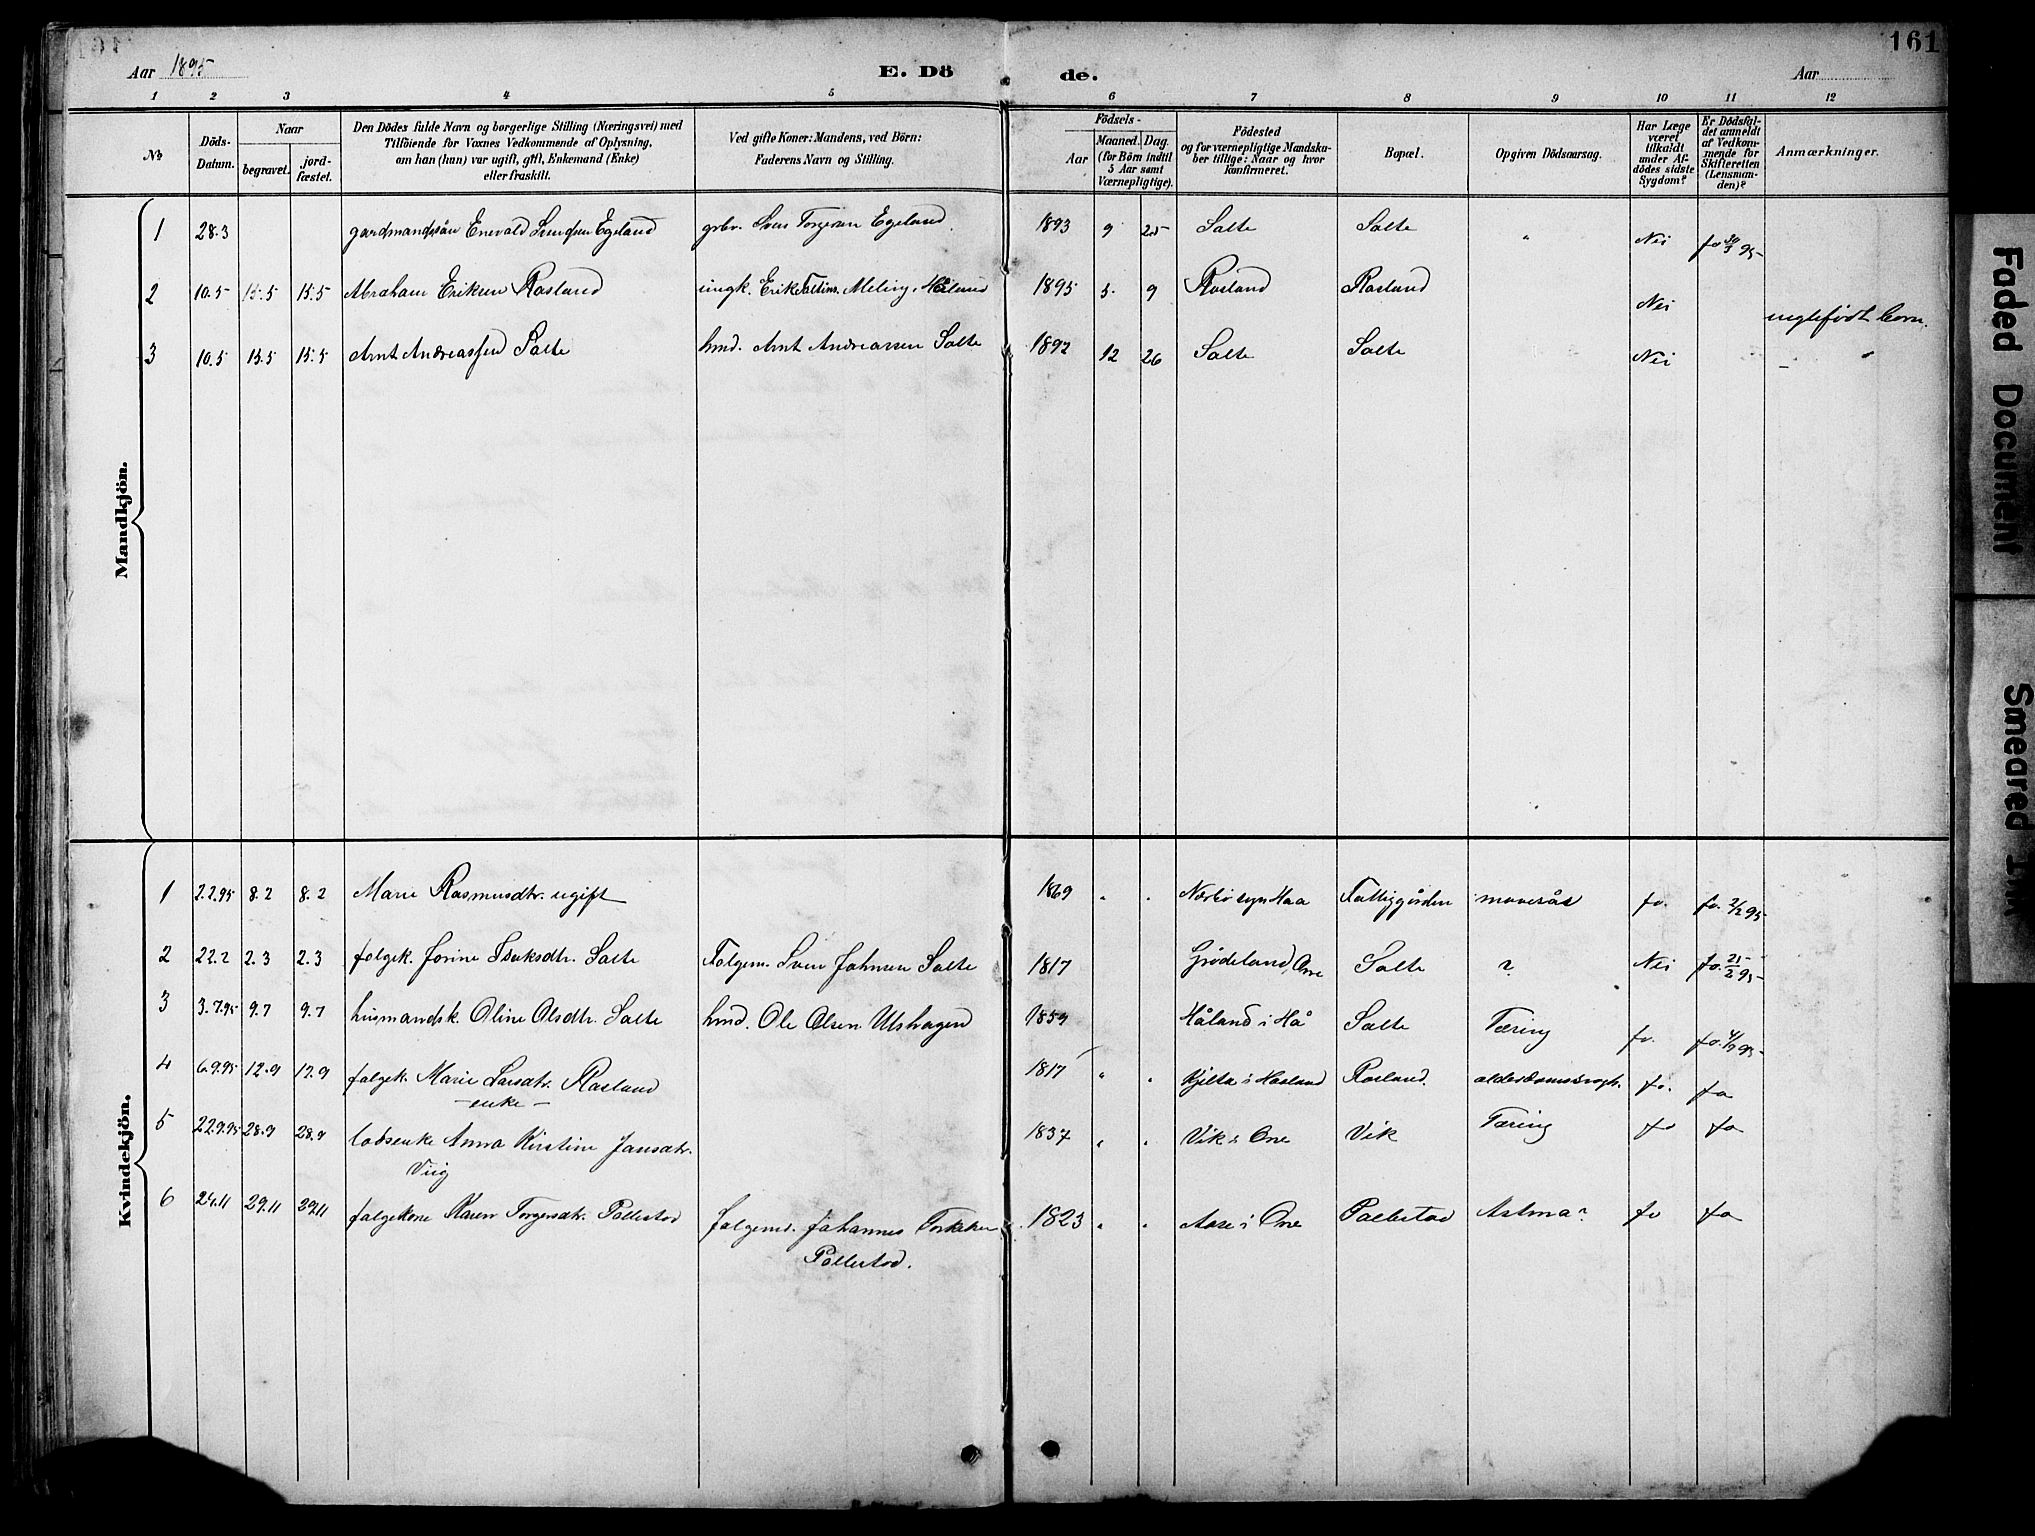 161
Aar 1895
E. Döde.
Aar
1 2 3 4 5 6 7 8 9 10 11 12
No
Döds-Datum.
Naar
begravet.
jordfæstet.
Den Dödes fulde Navn og borgerlige Stilling (Næringsvei) med
Tilföiende for Voxnes Vedkommende af Oplysning,
om han (hun) var ugift, gift, Enkemand (Enke)
eller fraskilt.
Ved gifte Koner: Mandens, ved Börn:
Faderens Navn og Stilling.
Födsels-
Aar
Maaned. Dag.
(for Börn indtil
5 Aar samt
Værnepligtige).
Födested
og for værnepligtige Mandskaber tillige: Naar og hvor
konfirmeret.
Bopæl.
Opgiven Dödsaarsag.
Har Læge
været
tilkaldt
under Afdödes sidste
Sygdom?
Er Dödsfaldet anmeldt
af Vedkommende for
Skifteretten
(Lensmanden)?
Anmærkninger.
Mandkjön.
1 28.3 gardmandssön Enevald Svendsen Egeland gbr. Sven Torgersen Egeland 1893 9 25 Salte Salte " Nei Jo 30/3 95
2 10.5 15.5 15.5 Abraham Eriksen Rosland ungk. Erik Meling, Høiland 1895 5. 9 Rosland Rosland Nei uegtefødt barn.
3 10.5 15.5 15.5 Arnt Andreassen Salte hmd. Arnt Andreassen Salte 1892 12 26 Salte Salte Nei - "
Kvindekjön.
1 2.2.95 8.2 8.2 Marie Rasmusdtr. ugift 1869 " " Nærbø sogn Haa Fattiggården mavesår Jo. Jo. 2/2 95
2 22.2 2.3 2.3 folgek. Jorine Isaksdtr. Salte Folgem. Sven Johnsen Salte 1817 Grødeland, Ore Salte ? Nei Jo. 25/2 95
3 3.7.95 9.7 9.7 husmandsk. Oline Olsdtr. Salte hmd. Ole Olsen Utshagen 1859 Håland i Hå Salte Tæring Jo. Jo. 4/7 95
4 6.9.95 12.9 12.9 folgek. Marie Larsdtr. Rosland
- enke - 1817 " " Kjelta i Høiland Rosland. alderdomssvagh. Jo. Jo
5 22.9.95 28.9 28.9 lodsenke Anna Kirstine Jansdtr.
Viig 1837 " " Vik i Ore Vik Tæring Jo Jo
6 24.11 29.11 29.11 folgekone Karen Torgersdtr. Pollestad folgemd. Johannes
Pollestad. 1823 " " Aase i Ore Pollestad Astma? Jo Jo
Faded Document
Smeared Ink